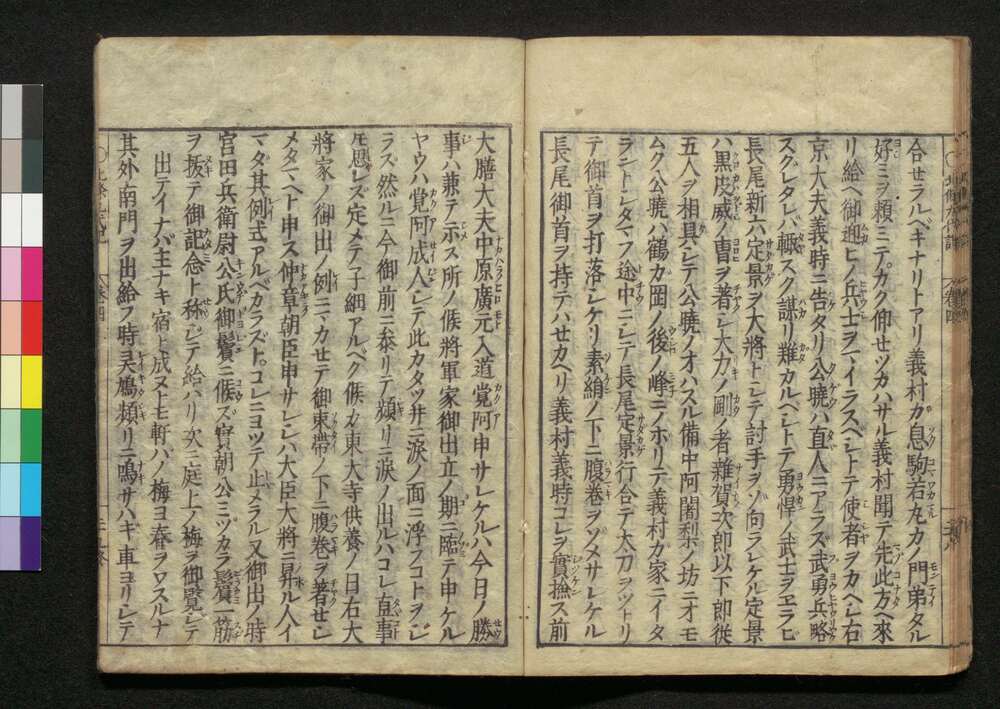 合せラルベキナリトアリ義村カ息駒若丸カノ門弟タル
好ミヲ頼ミテカク仰せツカハサル義村聞テ先此方ヘ来
リ給ヘ御迎ヒノ兵士ヲマイラスベシトテ使者ヲカヘシ右
京大夫義時ニ告タリ公暁ハ直人ニアラズ武勇兵略
スグレタレバ輙スク謀リ難カルヘシトテ勇悍ノ武士ヲヱラビ
長尾新六定景ヲ大将トシテ討手ヲソ向ラレケル定景
ハ黒皮威ノ冑ヲ著シ大力ノ剛ノ者雑賀次郎以下郎従
五人ヲ相具シテ公暁ノオハスル備中阿闍梨ノ坊ニオモ
ムク公暁ハ鶴カ岡ノ後ノ峰ニノホリテ義村カ家ニイタ
ラントシタマフ途中ニシテ長尾定景行合テ太刀ヲツトリ
テ御首ヲ打落シケリ素絹ノ下ニ腹巻ヲゾメサレケル
長尾御首ヲ持テハせカヘリ義村義時コレヲ實撿ス前
大膳大夫中原廣元入道覚阿申サレケルハ今日ノ勝
事ハ兼テ示ス所ノ候將軍家御出立ノ期ニ臨テ申ケル
ヤウハ覚阿成人シテ此カタツ井ニ涙ノ面ニ浮フコトヲシ
ラズ然ルニ今御前ニ参リテ頻リニ涙ノ出ルハコレ直事
トモ思ハレズ定メテ子細アルベク候カ東大寺供養ノ日右大
將家ノ御出ノ例ニマカせテ御束帯ノ下ニ腹巻ヲ著せシ
メタマヘト申ス仲章朝臣申サレシハ大臣大將ニ昇ル人イ
マダ其例式アルベカラズトコレニヨツテ止メラル又御出ノ時
宮田兵衛尉公氏御鬢ニ候ズ實朝公ミヅカラ鬢一筋
ヲ抜テ御記念ト称シテ給ハリ次ニ庭上ノ梅ヲ御覧シテ
出テイナバ主ナキ宿ト成ヌトモ軒バノ梅ヨ春ヲワスルナ
其外南門ヲ出給フ時灵鳩頻リニ鳴サハキ車ヨリシテ